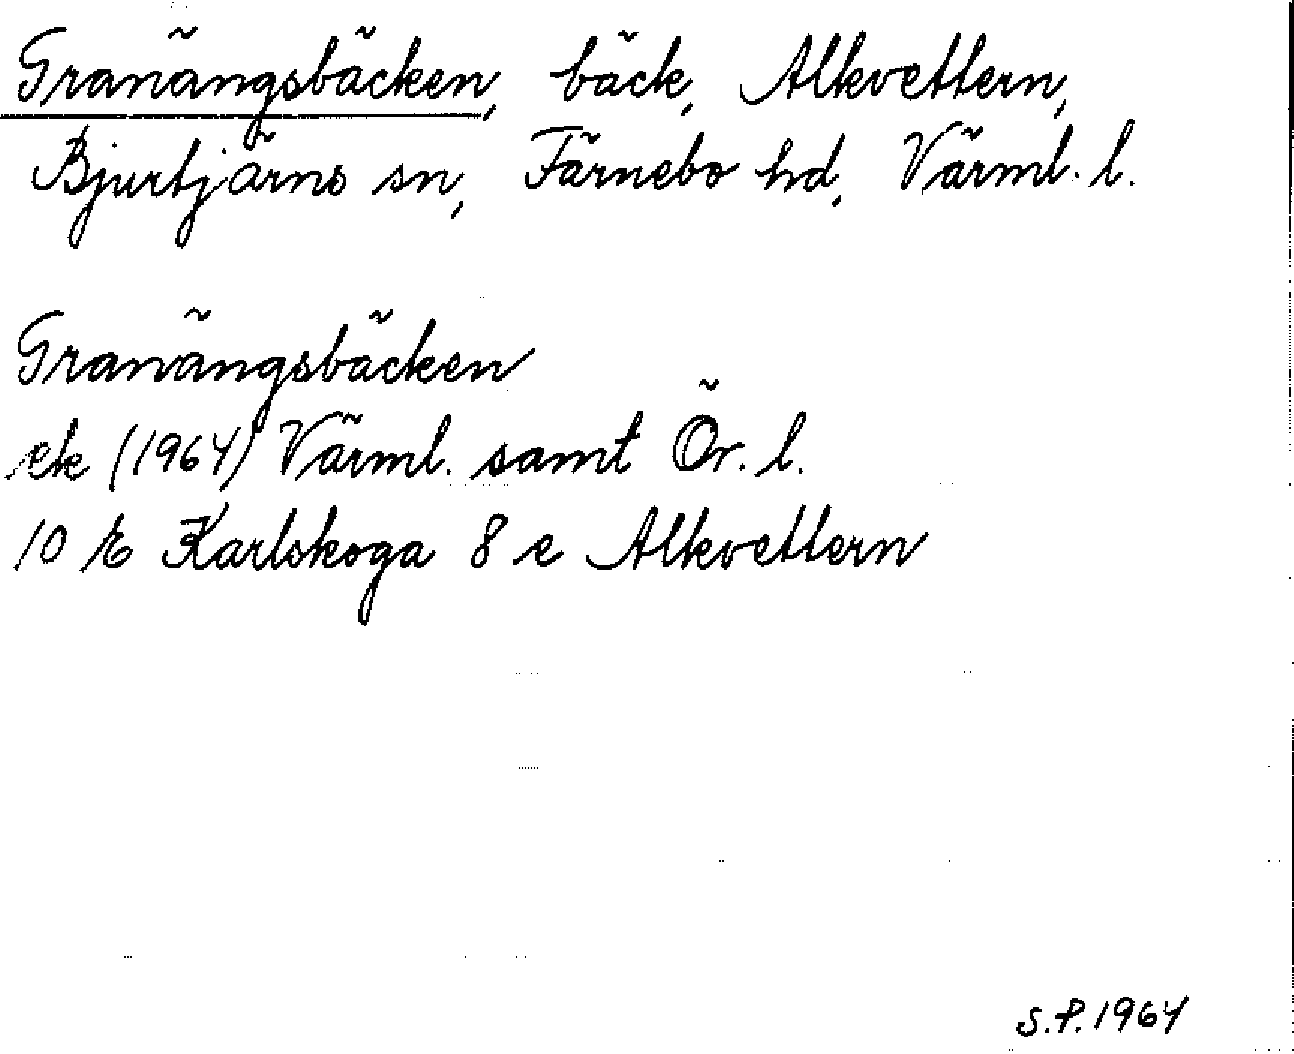 Granängsbäcken, bäck, Alkvettern,
Bjurtjärns sn, Färnebo hd, Värml. l.
Granängsbäcken
ek (1964) Värml. samt Ör. l.
10 E Karlskoga 8 e Alkvettern
S.P. 1964